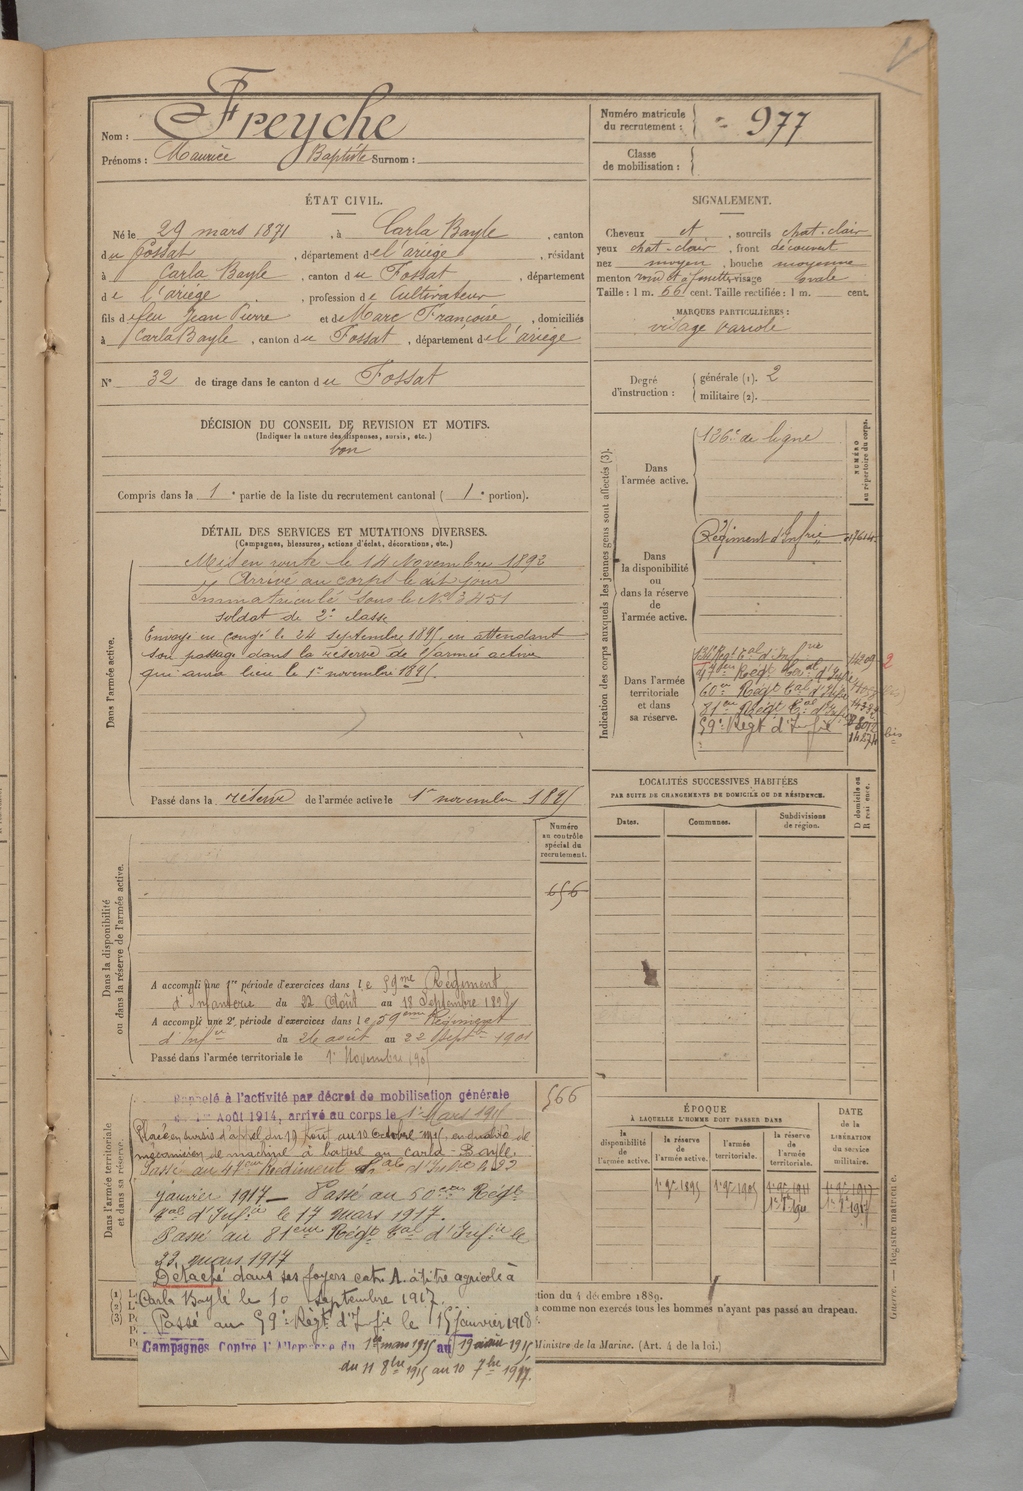 Nom : Freyche
Prénoms : Maurice Baptiste Surnom :
Numéro matricule du recrutement : 977
Classe de mobilisation :
ÉTAT CIVIL.
Né le 29 mars 1871, à Carla Bayle, canton
du Fossat, département de l'ariège, résidant
à Carla Bayle, canton du Fossat, département
de l'ariège, profession de Cultivateur
fils de feu Jean Pierre et de Marc Françoise, domiciliés
à Carla Bayle, canton du Fossat, département de l'ariège
N° 32 de tirage dans le canton du Fossat
SIGNALEMENT.
Cheveux et, sourcils chat-clair
yeux chat-clair, front découvert
nez moyen, bouche moyenne
menton rond et à fossette visage ovale
Taille : 1 m. 66 cent. Taille rectifiée : 1 m. cent.
MARQUES PARTICULIÈRES :
visage variolé
Degré d'instruction : générale (1). 2
militaire (2).
DÉCISION DU CONSEIL DE REVISION ET MOTIFS.
(Indiquer la nature des dispenses, sursis, etc.)
bon
Compris dans la 1e partie de la liste du recrutement cantonal (1e portion).
DÉTAIL DES SERVICES ET MUTATIONS DIVERSES.
(Campagnes, blessures, actions d'éclat, décorations, etc.)
Dans l'armée active.
Mis en route le 14 Novembre 1892
Arrivé au corps le dit jour
Immatriculé sous le N° 3451
soldat de 2e classe
Envoyé en congé le 24 septembre 1895, en attendant
son passage dans la réserve de l'armée active
qui aura lieu le 1er novembre 1895.
Passé dans la réserve de l'armée active le 1er novembre 1895
Indication des corps auxquels les jeunes gens sont affectés (3).
NUMÉRO au répertoire du corps.
Dans l'armée active.
136e de ligne
Dans la disponibilité ou dans la réserve de l'armée active.
Régiment d'Infrie
Dans l'armée territoriale et dans sa réserve.
136 Régt tal d'Infrie
Régt tal d'Infie
60em Régt tal d'Infie
81em Régt tal d'Infie
59e Régt d'Infie
14274 bis
LOCALITÉS SUCCESSIVES HABITÉES
PAR SUITE DE CHANGEMENTS DE DOMICILE OU DE RÉSIDENCE.
Dates. Communes. Subdivisions de région. D domicile ou R résidence.
Dans la disponibilité ou dans la réserve de l'armée active.
Numéro au contrôle spécial du recrutement.
656
A accompli une 1re période d'exercices dans le 59me Régiment
d'Infanterie du 22 Août au 18 Septembre 1898
A accompli une 2e période d'exercices dans le 59eme Régiment
d'Infie du 26 août au 22 Sept 1901
Passé dans l'armée territoriale le 1er Novembre 1905
Dans l'armée territoriale et dans sa réserve.
566
Rappelé à l'activité par décret de mobilisation générale
Août 1914, arrivé au corps le 1er Mars 1915
Placé en sursis d'appel du 19 Août au 10 Octobre 1915, en qualité de
mécanicien de machine à battre au Carla-Bayle.
Passé au Régiment tal d'Infie le 22
janvier 1917 — Passé au 60eme Régt
tal d'Infie le 17 mars 1917.
Passé au 81eme Régt tal d'Infie le
23 mars 1917
Détaché dans ses foyers catie A. à titre agricole à
Carla Bayle le 10 septembre 1917.
Passé au 59e Régt d'Infie le 15 janvier 1918
Campagnes Contre l'Allemagne du 1er mars 1915 au 19 août 1915
du 11 8bre 1915 au 10 7bre 1917.
ÉPOQUE
À LAQUELLE L'HOMME DOIT PASSER DANS
la disponibilité de l'armée active. la réserve de l'armée active. l'armée territoriale. la réserve de l'armée territoriale.
DATE de la LIBÉRATION du service militaire.
1er 9bre 1895 1er 9bre 1905 1er 9bre 1911 1er 9bre 1917
ction du 4 décembre 1889.
à comme non exercés tous les hommes n'ayant pas passé au drapeau.
Ministre de la Marine. (Art. 4 de la loi.)
Guerre. — Registre matricule.